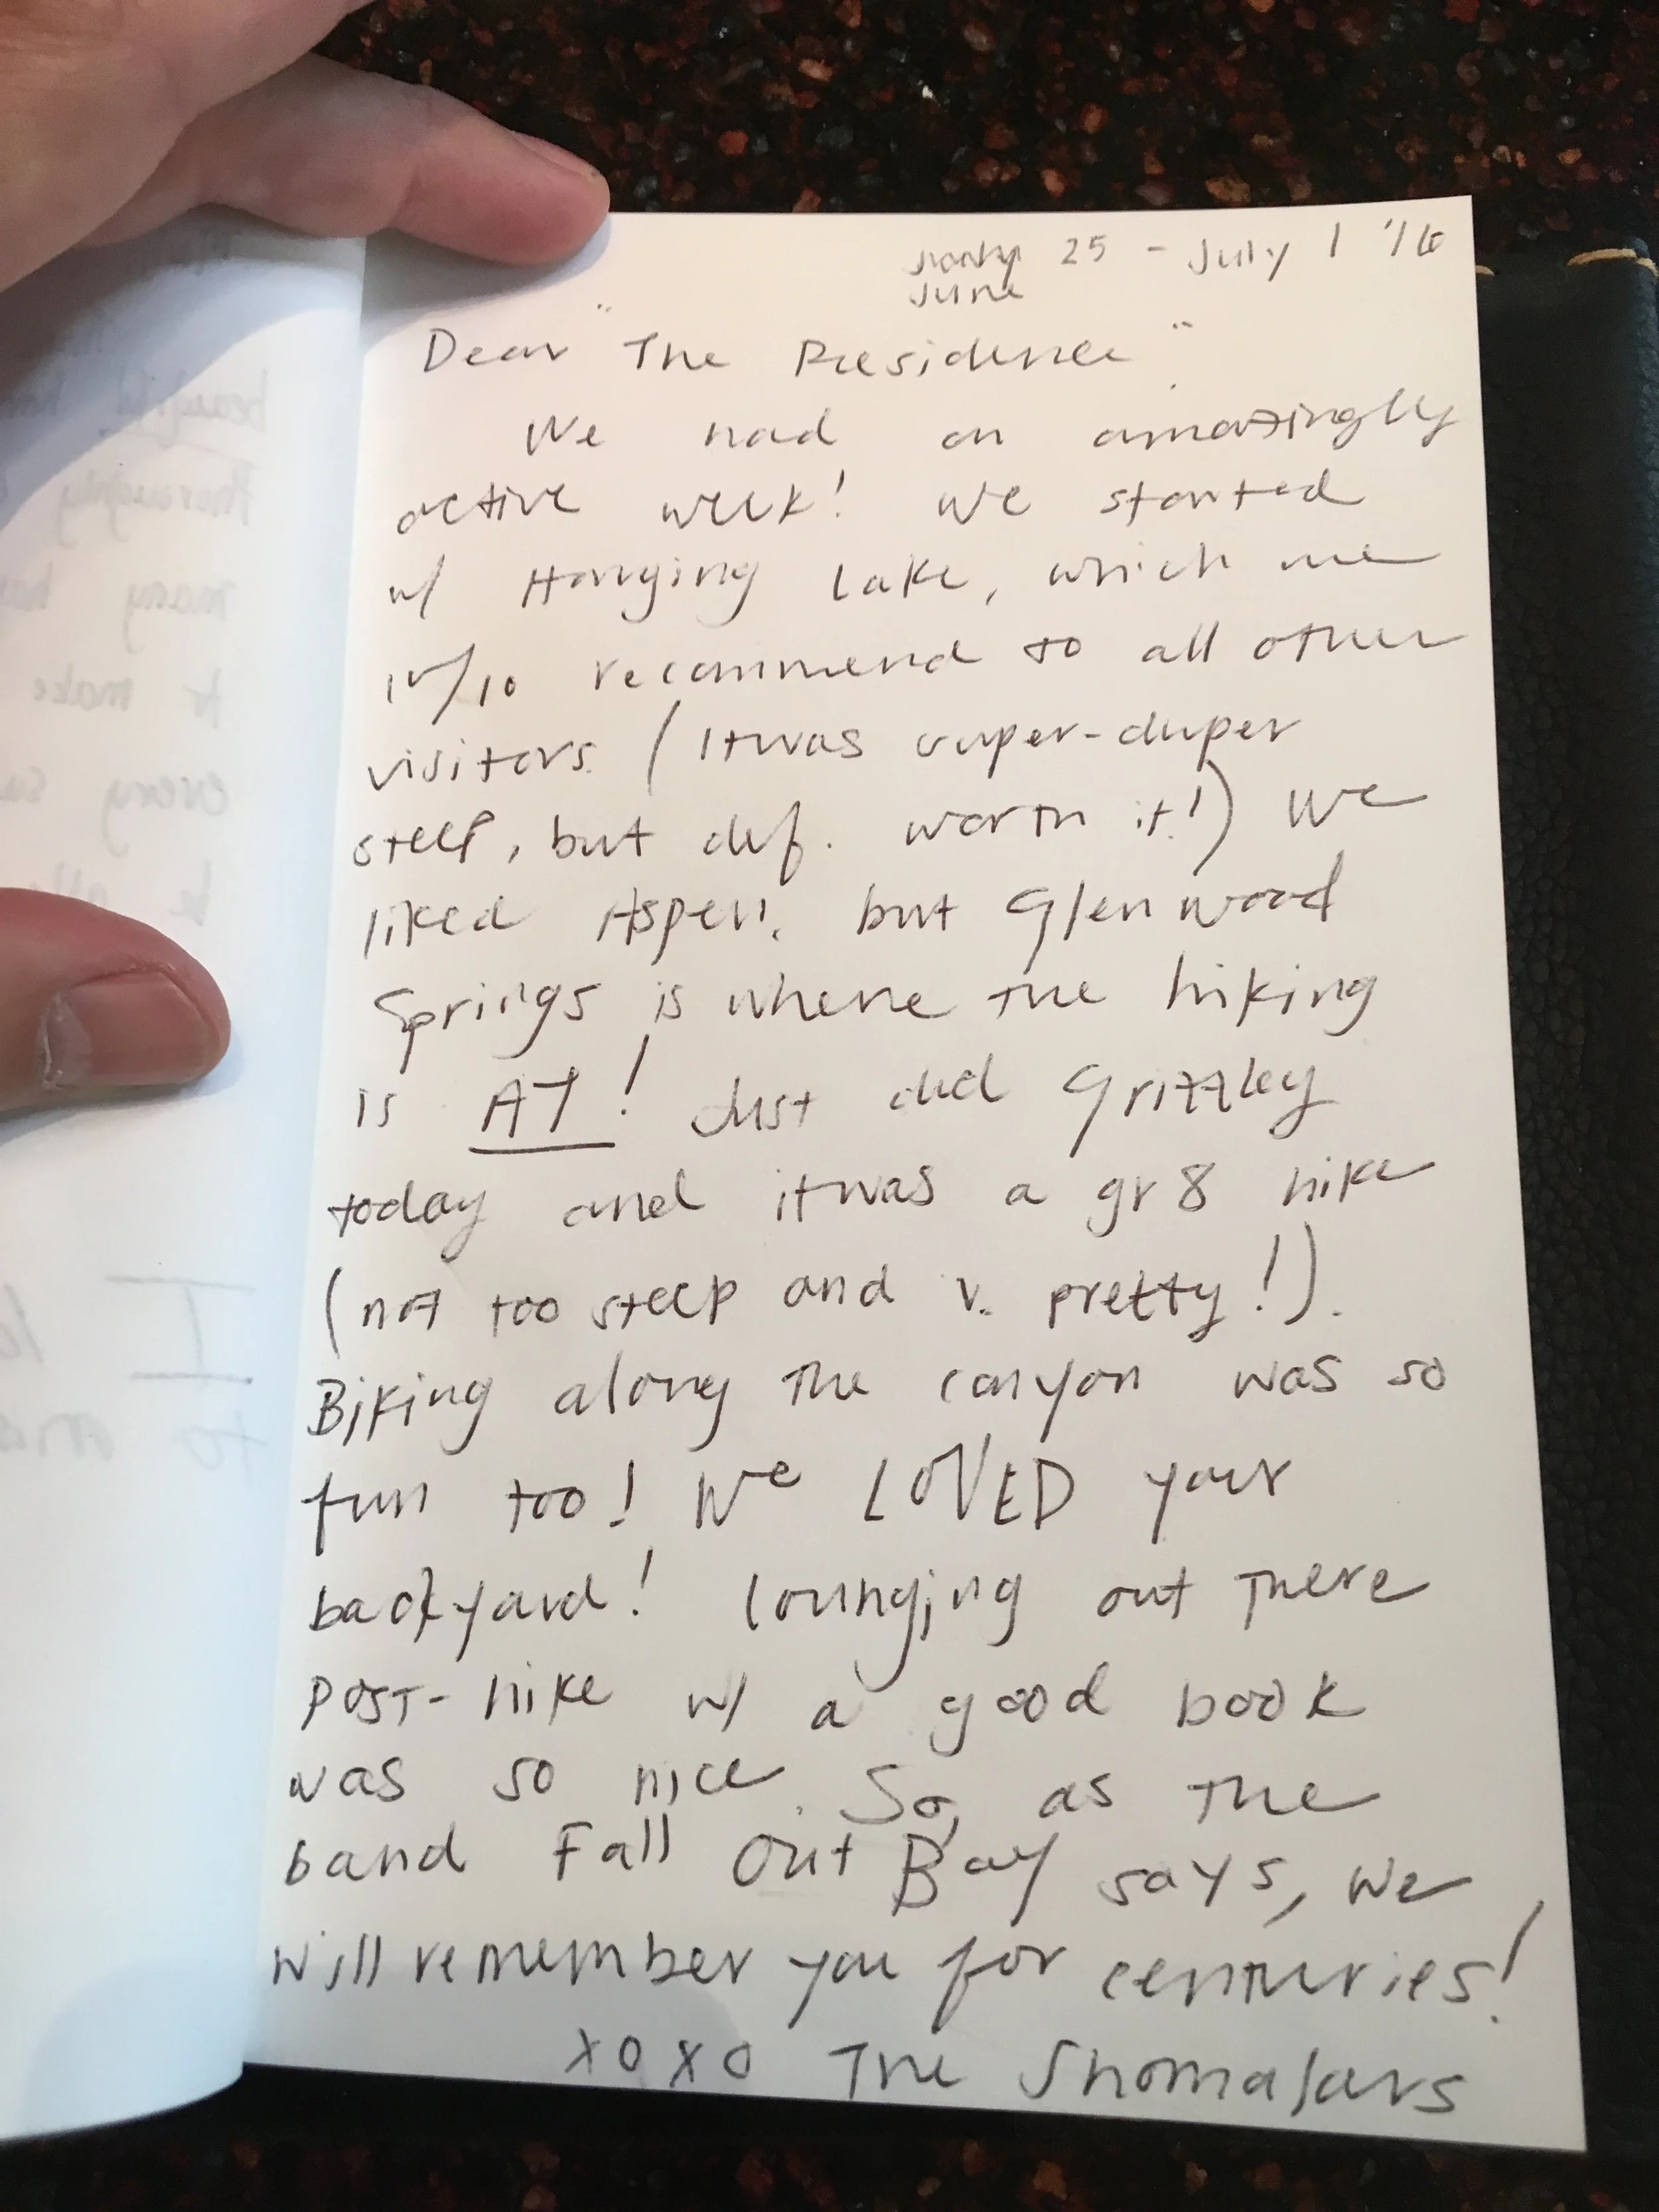 June 25 - July 1 '16
Dear "The Residence"
We had an amazingly
active week! We started
w/ Hanging Lake, which we
10/10 recommend to all other
visitors. (It was super-duper
steep, but def. worth it!) We
liked Aspen, but Glenwood
Springs is where the hiking
is AT! Just did Grizzley
today and it was a gr8 hike
(not too steep and v. pretty!).
Biking along the canyon was so
fun too! We LOVED your
backyard! Lounging out there
post-hike w/ a good book
was so nice. So, as the
band Fall Out Boy says, we
will remember you for centuries!
xoxo The Shomalars
beautiful
thoroughly
many
to make
every
be
I
to